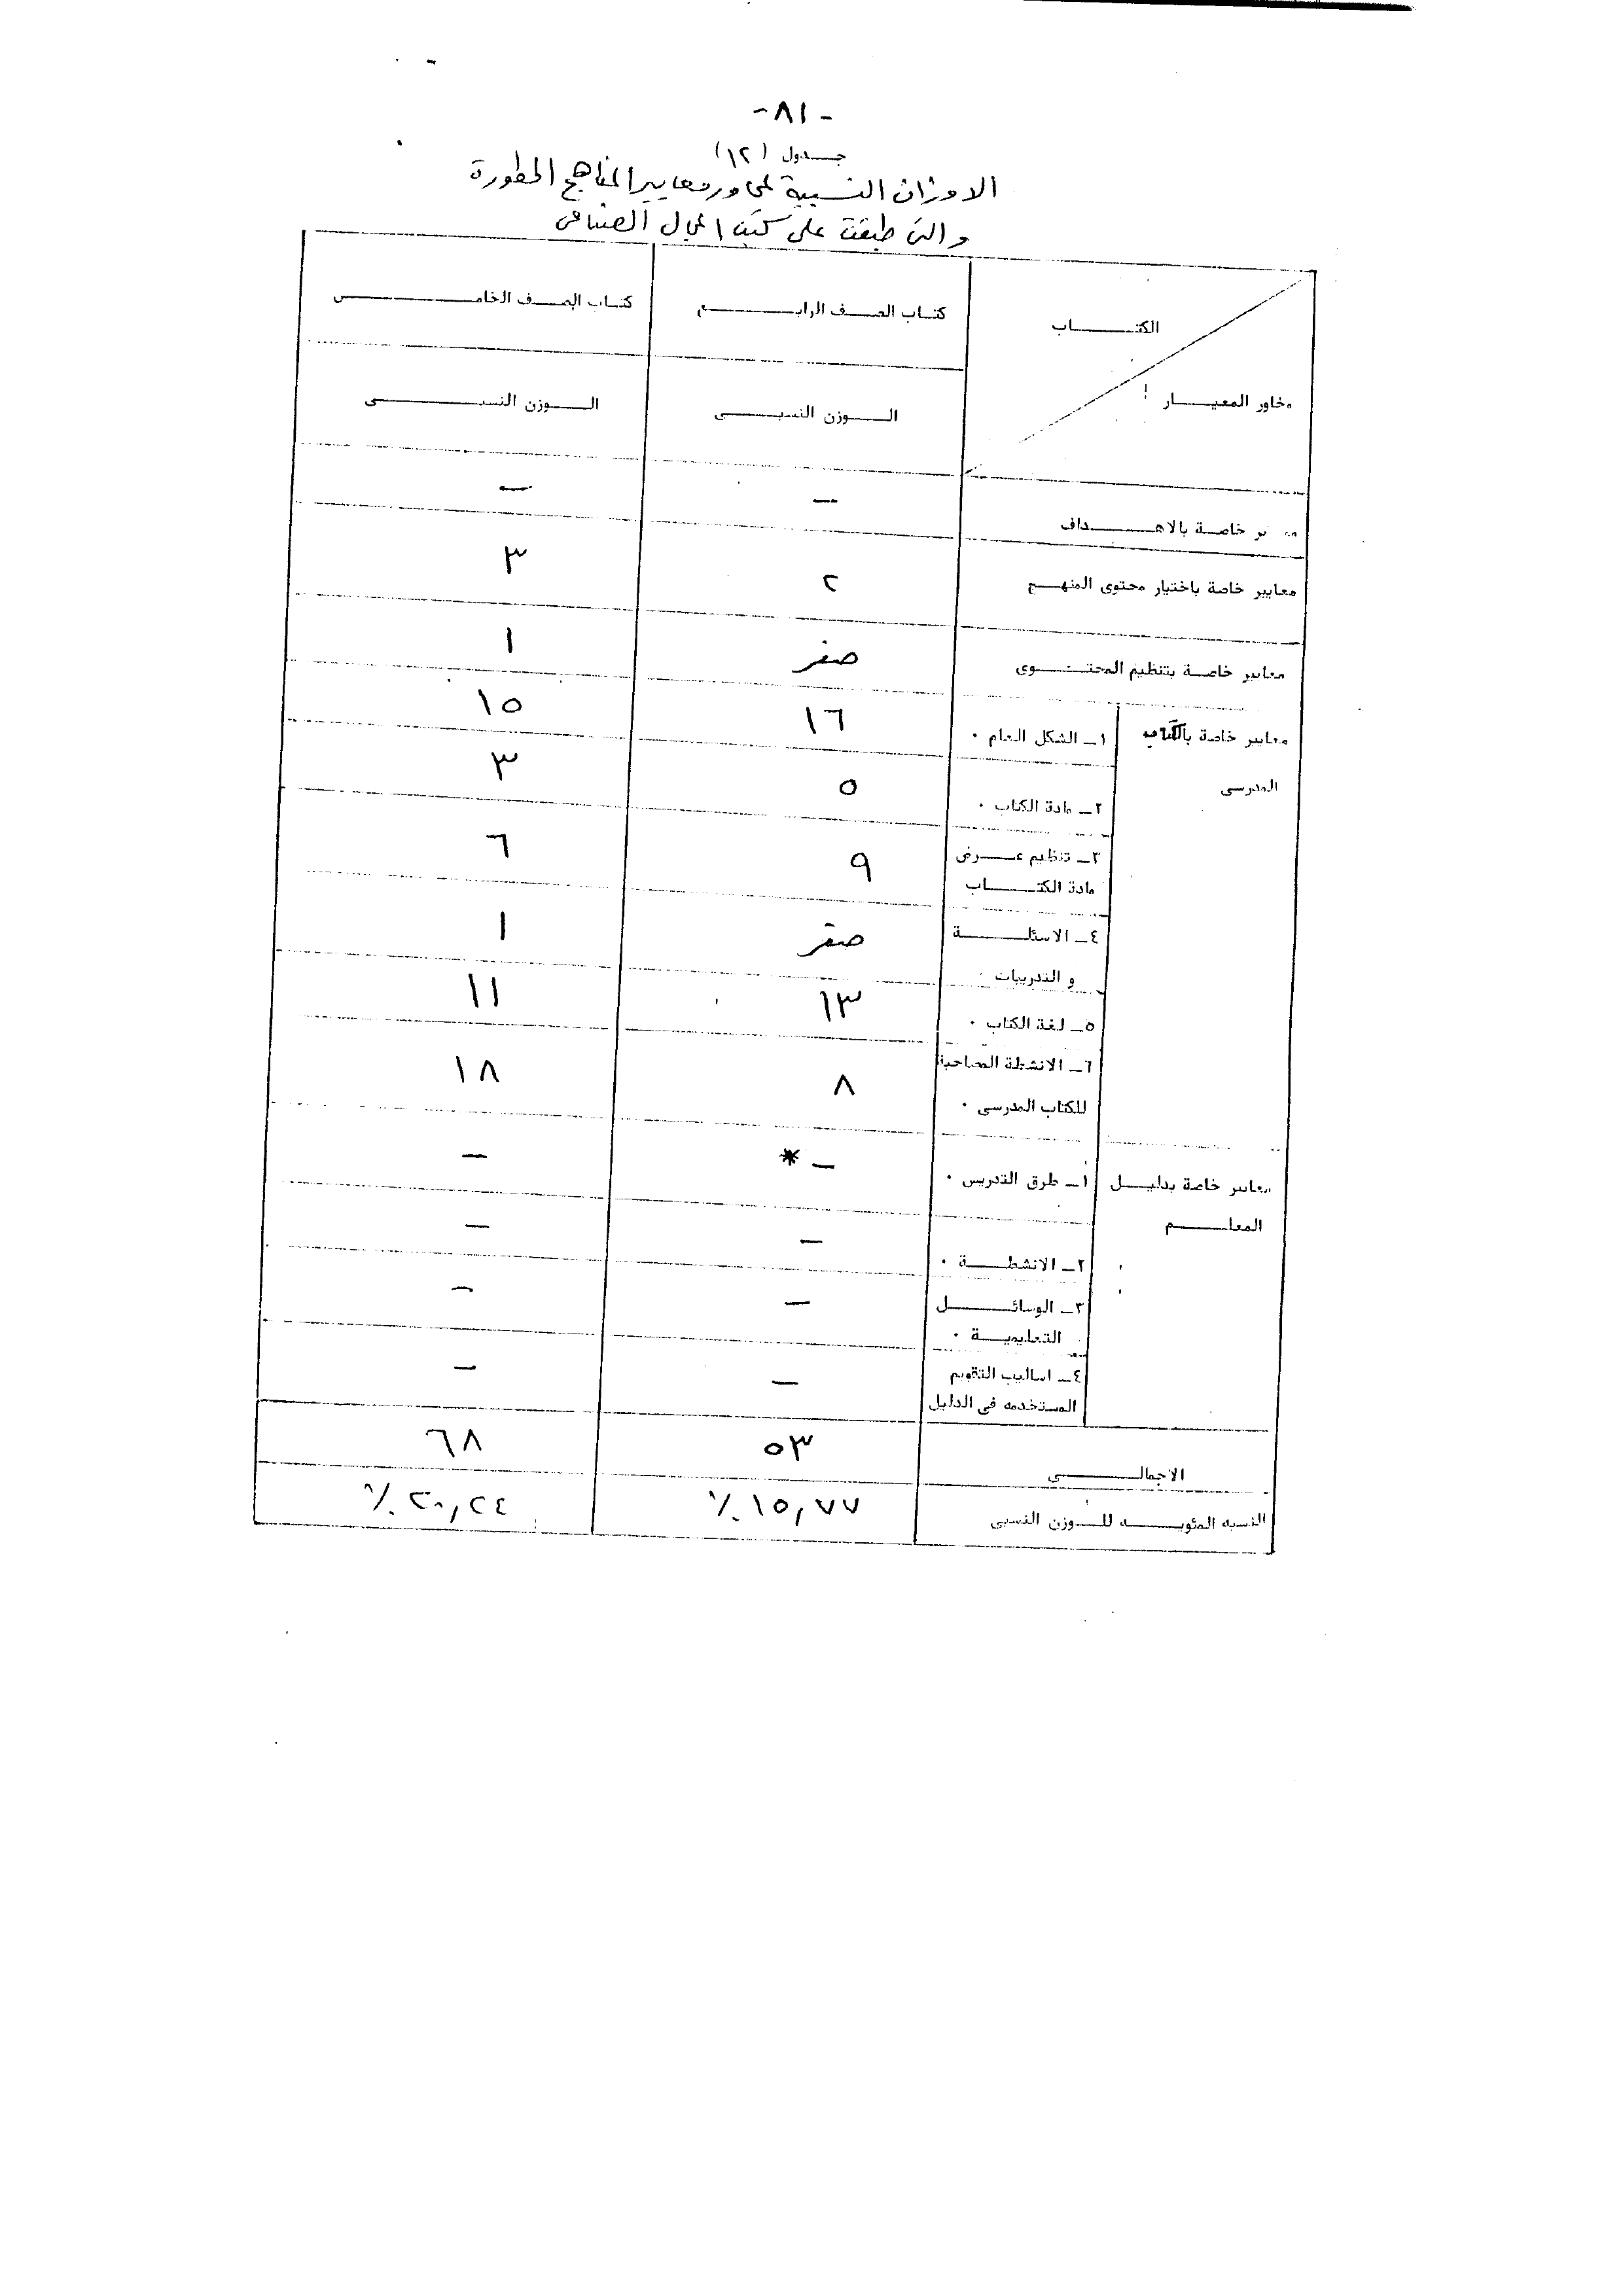 -٨١-
جدول (١٢)
الاوزان النسبية لمحاور معايير المناهج المطورة
والتى طبقت على كتب المجال الصناعى
الكتاب كتاب الصف الرابع كتاب الصف الخامس
محاور المعيار الوزن النسبى الوزن النسبى
خاصة بالاهداف — —
معايير خاصة باختيار محتوى المنهج ٢ ٣
معايير خاصة بتنظيم المحتوى صفر ١
معايير خاصة بالكتاب ١ـ الشكل العام . ١٦ ١٥
المدرسى
٢ـ مادة الكتاب . ٥ ٣
٣ـ تنظيم عرض ٩ ٦
مادة الكتاب
٤ـ الاسئلة صفر ١
و التدريبات
٥ـ لغة الكتاب . ١٣ ١١
٦ـ الانشطة المصاحبة ٨ ١٨
للكتاب المدرسى .
معايير خاصة بدليل ١ـ طرق التدريس . — * —
المعلم
٢ـ الانشطة . — —
٣ـ الوسائل — —
التعليمية .
٤ـ اساليب التقويم — —
المستخدمه فى الدليل
الاجمالى ٥٣ ٦٨
النسبه المئويه للوزن النسبى ١٥,٧٧ ٪ ٢٠,٢٤ ٪